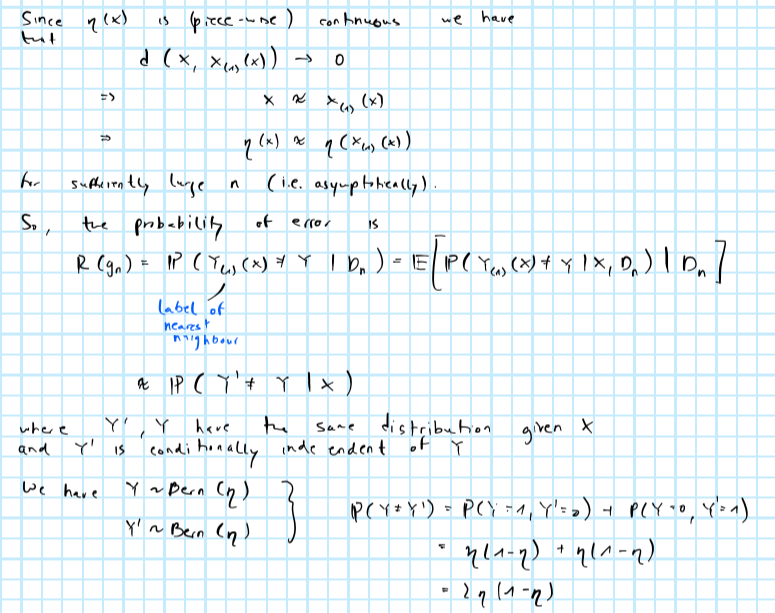 Since η(x) is (piece-wise) continuous we have
that
d(x, x₍₁₎(x)) → 0
⇒ x ≈ x₍₁₎(x)
⇒ η(x) ≈ η(x₍₁₎(x))
for sufficiently large n (i.e. asymptotically).
So, the probability of error is
R(gₙ) = ℙ(Y₍₁₎(x) ≠ Y | Dₙ) = 𝔼[ℙ(Y₍₁₎(x) ≠ Y | X, Dₙ) | Dₙ]
label of
nearest
neighbour
≈ ℙ(Y' ≠ Y | X)
where Y', Y have the same distribution given X
and Y' is conditionally inde endent of Y
We have Y ~ Bern(η)
Y' ~ Bern(η)
ℙ(Y ≠ Y') = P(Y=1, Y'=0) + P(Y=0, Y'=1)
= η(1-η) + η(1-η)
= 2η(1-η)